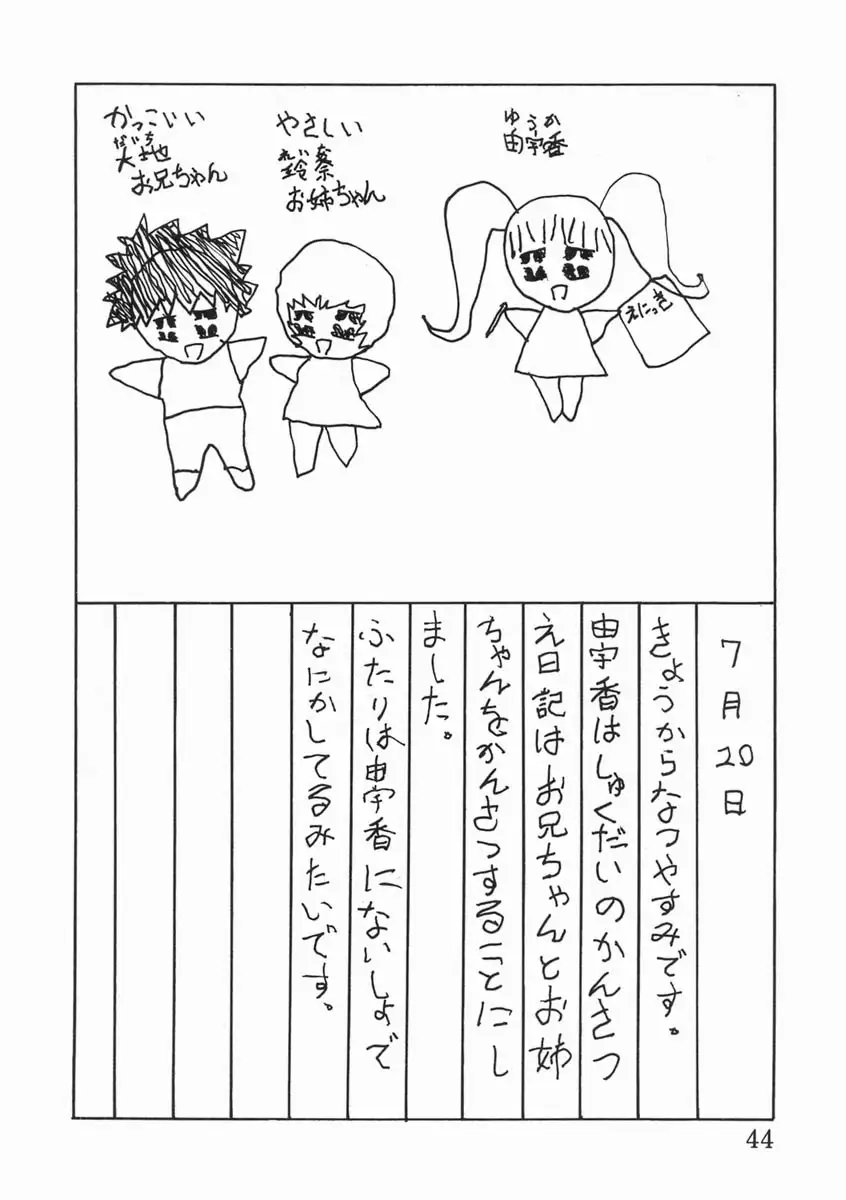 かっこいい
だいち
大地
お兄ちゃん
やさしい
れいな
玲奈
お姉ちゃん
ゆうか
由宇香
えにっき
7月20日
きょうからなつやすみです。
由宇香はしゅくだいのかんさつ
え日記はお兄ちゃんとお姉
ちゃんをかんさつすることにし
ました。
ふたりは由宇香にないしょで
なにかしてるみたいです。
44